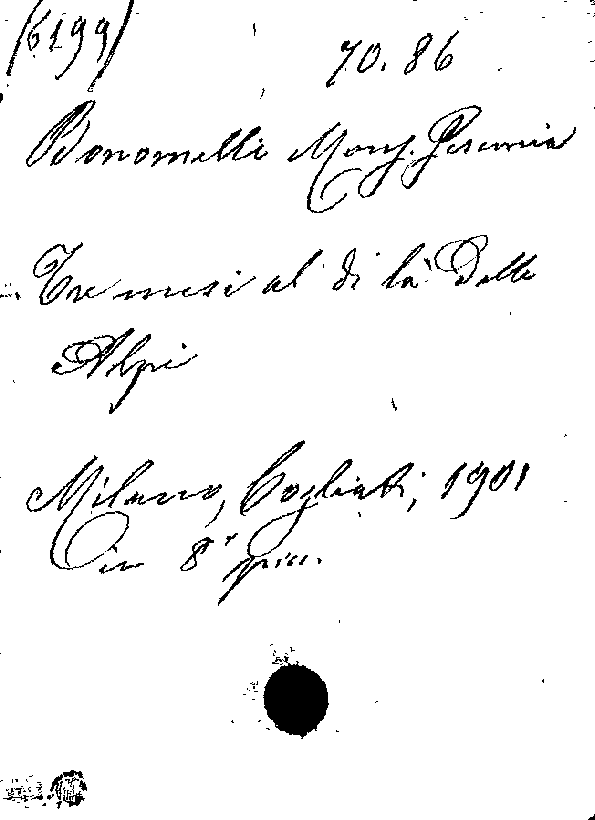 (6199)
70.86
Bonomelli Mons. Geremia
Tre mesi al di là delle
Alpi
Milano, Cogliati, 1901
in 8° picc.